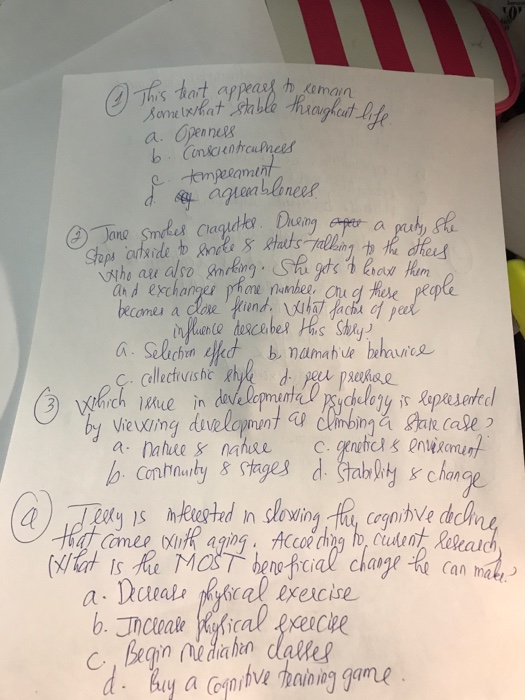 ① This trait appears to remain
somewhat stable throughout life
a. Openness
b. Conscientiousness
c. temperament
d. agreeableness
② Jane smokes cigarettes. During a party, she
steps outside to smoke & starts talking to the others
who are also smoking. She gets to know them
and exchanges phone number. One of these people
becomes a close friend. What factor of peer
influence describes this story?
a. Selection effect b. normative behavior
c. collectivistic style d. peer pressure
③ Which issue in developmental psychology is represented
by viewing development as climbing a stair case?
a. nature & nature c. genetics & enviroment
b. Continuity & stages d. Stability & change
④ Terry is interested in slowing the cognitive decline
that comes with aging. According to current research,
What is the MOST beneficial change he can make?
a. Decrease physical exercise
b. Increase physical exercise
c. Begin mediation classes
d. Buy a cognitive training game.